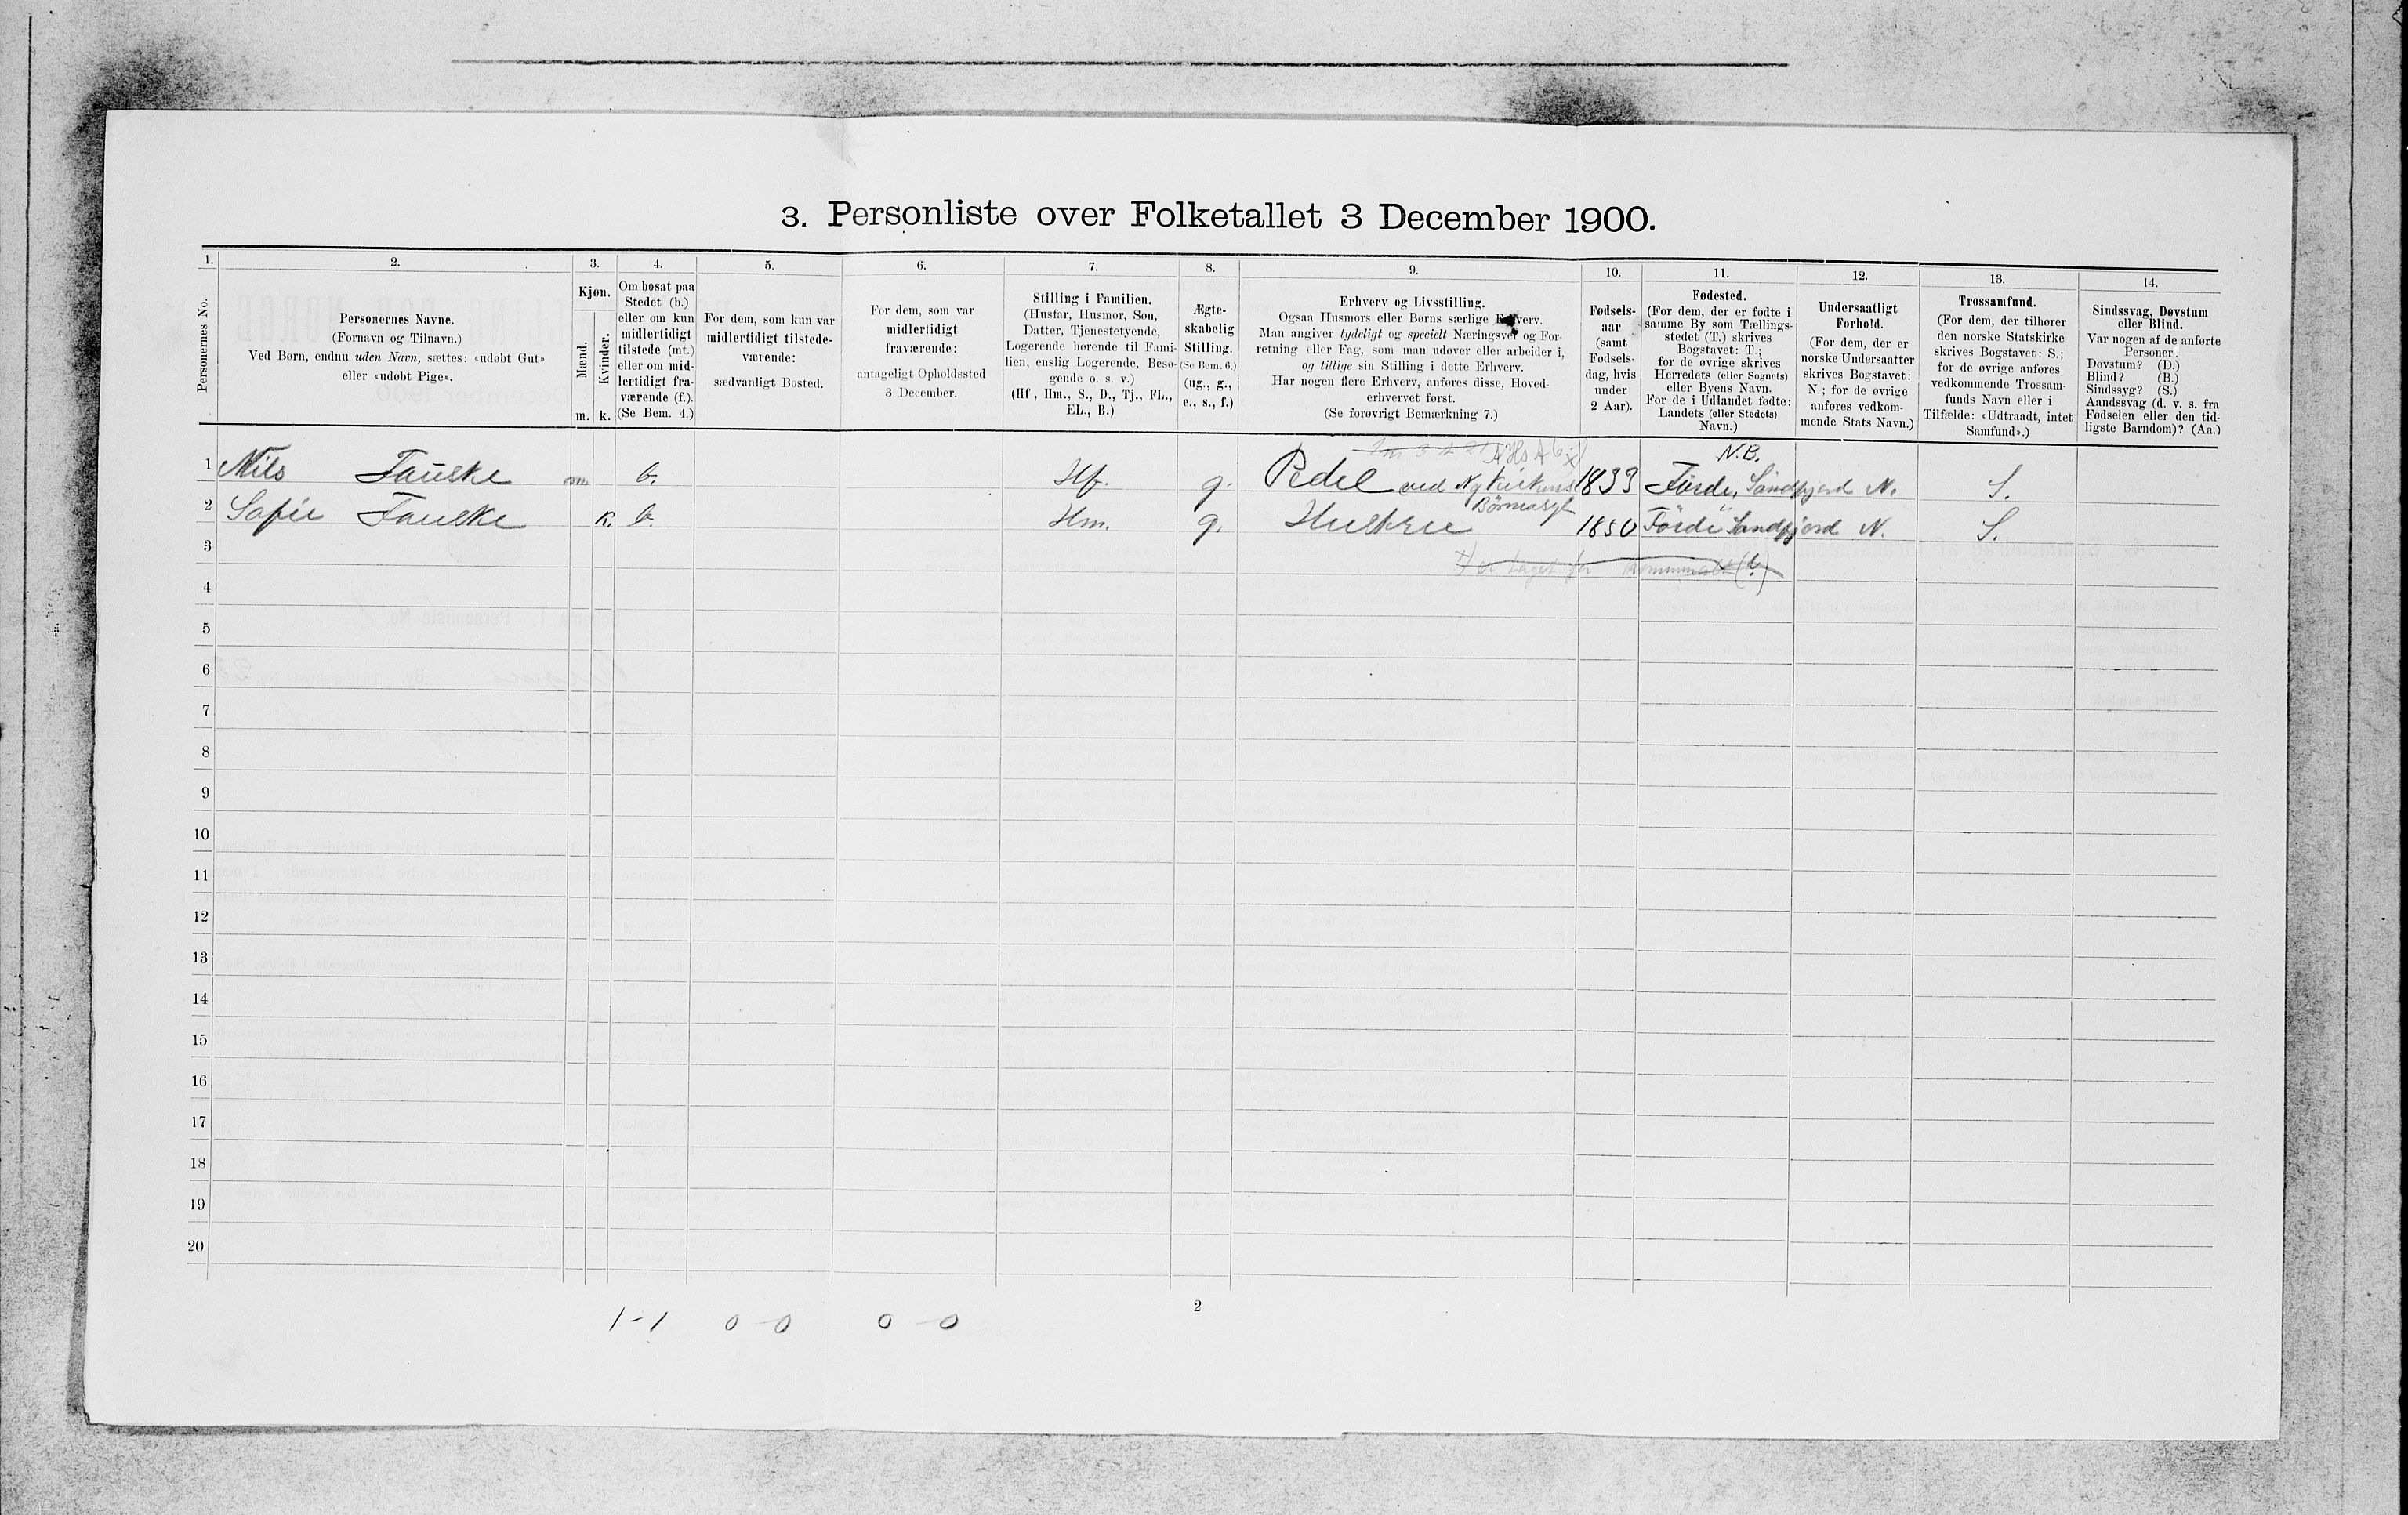 3. Personliste over Folketallet 3 December 1900.
1. 2. 3. 4. 5. 6. 7. 8. 9. 10. 11. 12. 13. 14.
Personernes No.
Personernes Navne.
(Fornavn og Tilnavn.)
Ved Børn, endnu uden Navn, sættes: «udøbt Gut»
eller «udøbt Pige».
Kjøn.
Mænd.
Kvinder.
m. k.
Om bosat paa
Stedet (b.)
eller om kun
midlertidigt
tilstede (mt.)
eller om mid-
lertidigt fra-
værende (f.).
(Se Bem. 4.)
For dem, som kun var
midlertidigt tilstede-
værende:
sædvanligt Bosted.
For dem, som var
midlertidigt
fraværende:
antageligt Opholdssted
3 December.
Stilling i Familien.
(Husfar, Husmor, Søn,
Datter, Tjenestetyende,
Logerende hørende til Fami-
lien, enslig Logerende, Besø-
gende o. s. v.)
(Hf., Hm., S., D., Tj., FL.,
EL., B.)
Ægte-
skabelig
Stilling.
(Se Bem. 6.)
(ug., g.,
e., s., f.)
Erhverv og Livsstilling.
Ogsaa Husmors eller Børns særlige Erhverv.
Man angiver tydeligt og specielt Næringsvei og For-
retning eller Fag, som man udøver eller arbeider i,
og tillige sin Stilling i dette Erhverv.
Har nogen flere Erhverv, anføres disse, Hoved-
erhvervet først.
(Se forøvrigt Bemærkning 7.)
Fødsels-
aar
(samt
Fødsels-
dag, hvis
under
2 Aar).
Fødested.
(For dem, der er fødte i
samme By som Tællings-
stedet (T.) skrives
Bogstavet: T.;
for de øvrige skrives
Herredets (eller Sognets)
eller Byens Navn.
For de i Udlandet fødte:
Landets (eller Stedets)
Navn.)
Undersaatligt
Forhold.
(For dem, der er
norske Undersaatter
skrives Bogstavet:
N.; for de øvrige
anføres vedkom-
mende Stats Navn.)
Trossamfund.
(For dem, der tilhører
den norske Statskirke
skrives Bogstavet: S.;
for de øvrige anføres
vedkommende Trossam-
funds Navn eller i
Tilfælde: «Udtraadt, intet
Samfund».)
Sindssvag, Døvstum
eller Blind.
Var nogen af de anførte
Personer:
Døvstum? (D.)
Blind? (B.)
Sindssyg? (S.)
Aandssvag (d. v. s. fra
Fødselen eller den tid-
ligste Barndom)? (Aa.)
N.B.
1 Nils Fauske m b. Hf. g. Pedel ved Nykirkens 1833 Förde, Söndfjord N. S.
Børneasyl
2 Sofie Fauske k. b. Hm. g. Hustru 1850 Förde Söndfjord N. S.
3
4
5
6
7
8
9
10
11
12
13
14
15
16
17
18
19
20
2
1-1 0-0 0-0